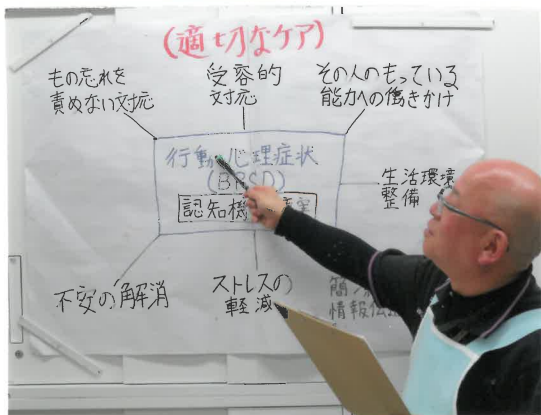 (適切なケア)
もの忘れを
責めない対応
受容的
対応
その人のもっている
能力への働きかけ
行動 心理症状
(BPSD)
認知機
生活環境
整備
不安の解消
ストレスの
軽減
簡
情報伝